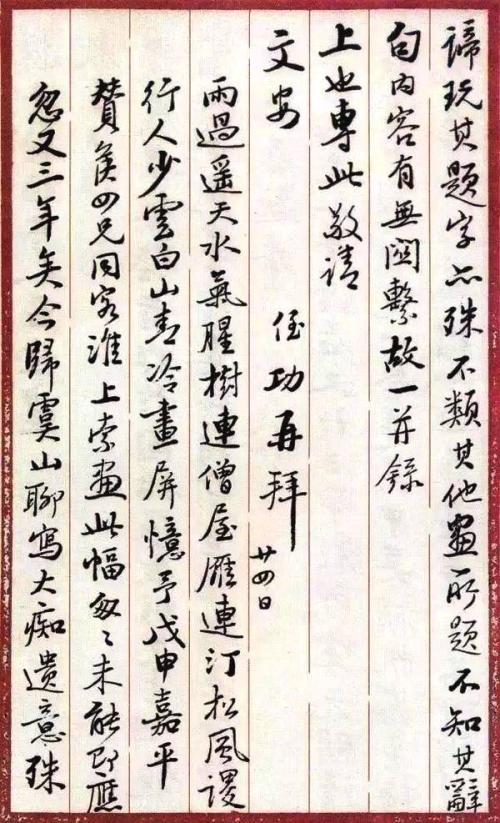 諦玩其題字亦殊不類其他畫所題不知其辭
句内容有無関繫故一并錄
上也專此敬请
文安
侄功再拜
廿四日
雨過遥天水氣腥樹連僧屋雁連汀松風謖
行人少雲白山青冷畫屏憶予戊申嘉平
贊侯四兄同客淮上索畫此幅匆〻未能即應
忽又三年矣今歸虞山聊寫大痴遺意殊